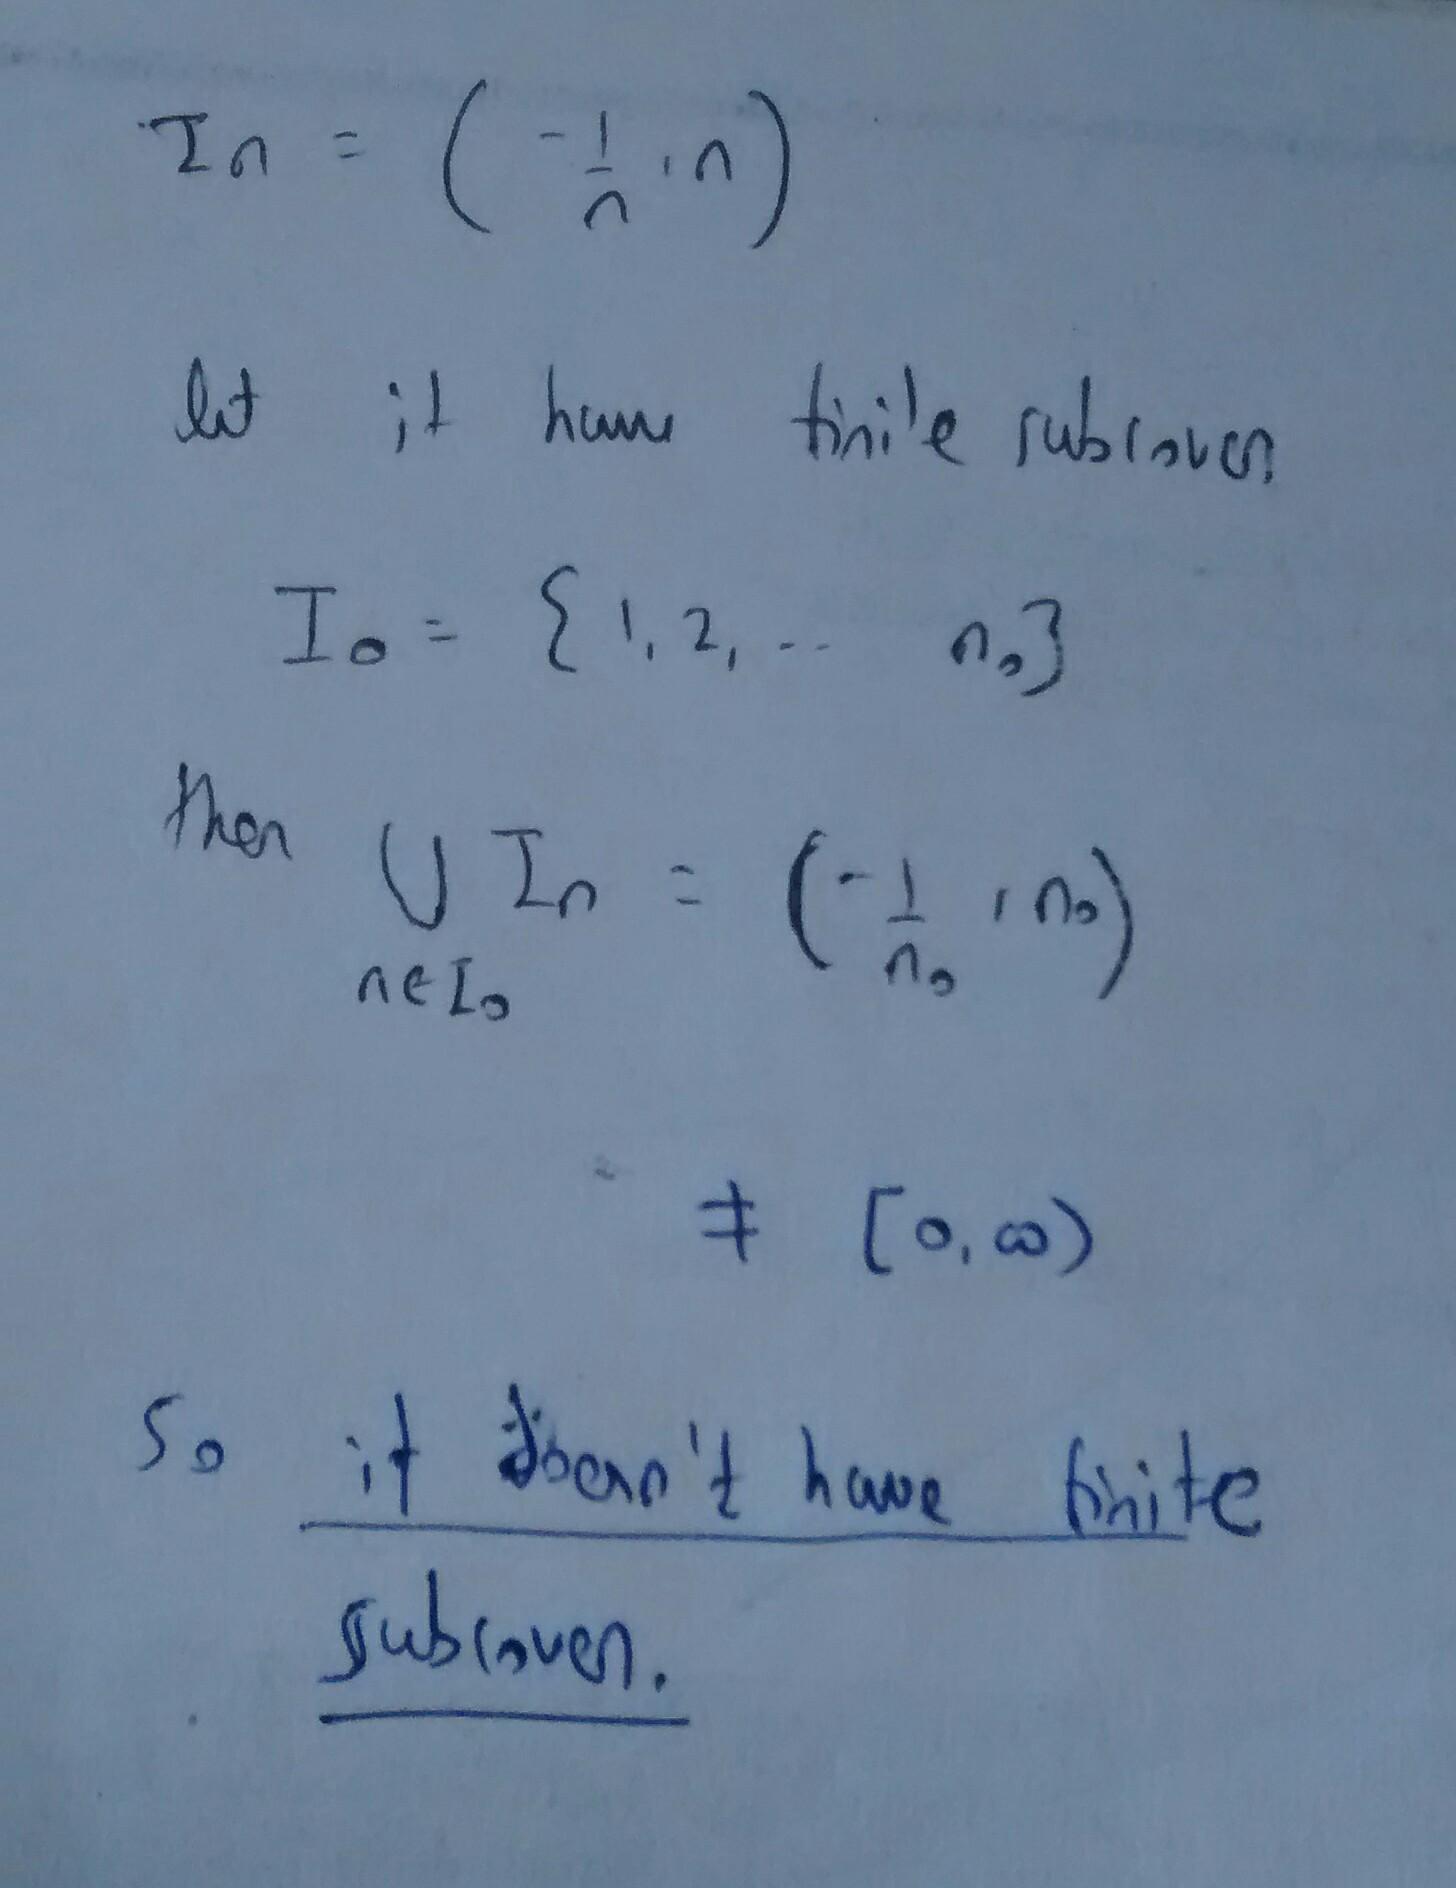 In = (-1/n, n)
let it have finite subcover
I₀ = {1, 2, .. n₀}
then ⋃ In = (-1/n₀, n₀)
n∈I₀
≠ [0, ∞)
So it doesn't have finite
subcover.